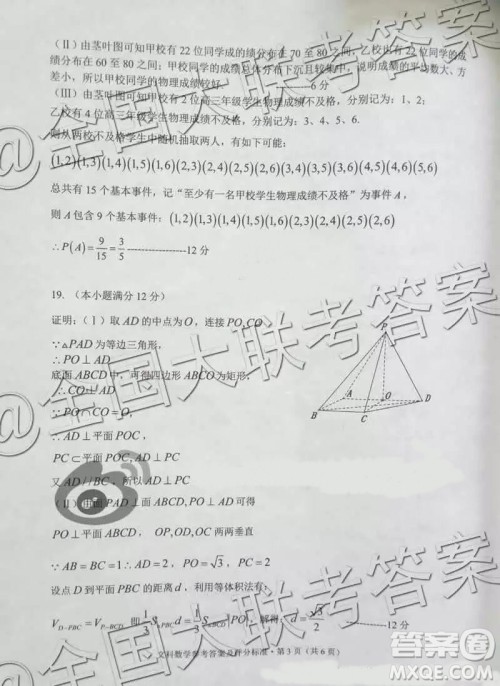 (Ⅱ)由茎叶图可知甲校有22位同学成的绩分布在70至80之间,乙校也有22位同学成
绩分布在60至80之间;甲校同学的成绩总体分布下沉且较集中,说明成绩的平均数大、方
差小,所以甲校同学的物理成绩较好.----------6分
(Ⅲ)由茎叶图可知甲校有2位高三年级学生物理成绩不及格,分别记为:1,2;
乙校有4位高三年级学生物理成绩不及格,分别记为:3、4、5、6.
则从两校不及格学生中随机抽取两人,有如下可能:
(1,2)(1,3)(1,4)(1,5)(1,6)(2,3)(2,4)(2,5)(2,6)(3,4)(3,5)(3,6)(4,5)(4,6)(5,6)
总共有15个基本事件,记“至少有一名甲校学生物理成绩不及格”为事件A,
则A包含9个基本事件:(1,2)(1,3)(1,4)(1,5)(1,6)(2,3)(2,4)(2,5)(2,6)
∴P(A)=9/15=3/5 ----------------12分
19.(本小题满分12分)
证明:(Ⅰ)取AD的中点为O,连接PO,CO
∵△PAD为等边三角形,
∴PO⊥AD
底面ABCD中,可得四边形ABCO为矩形,
∴CO⊥AD
∵PO∩CO=O,
∴AD⊥平面POC,
PC⊂平面POC,AD⊥PC
又AD//BC,所以AD⊥PC
P
A
O
D
B
C
(Ⅱ)由面PAD⊥面ABCD,PO⊥AD可得
PO⊥平面ABCD, OP,OD,OC两两垂直
∵AB=BC=1∴AD=2, PO=√3, PC=2
设点D到平面PBC的距离d,利用等体积法有:
V_{D-PBC}=V_{P-BCD} 即 1/3 S_{PBC} d=1/3 S_{BCD} PO, 解得:d=√3/2 ------12分
文科数学参考答案及评分标准·第3页(共6页)
@全国大联考答案
@全国大联考答案
@全国大联考答案
答案圈
MXQE.COM